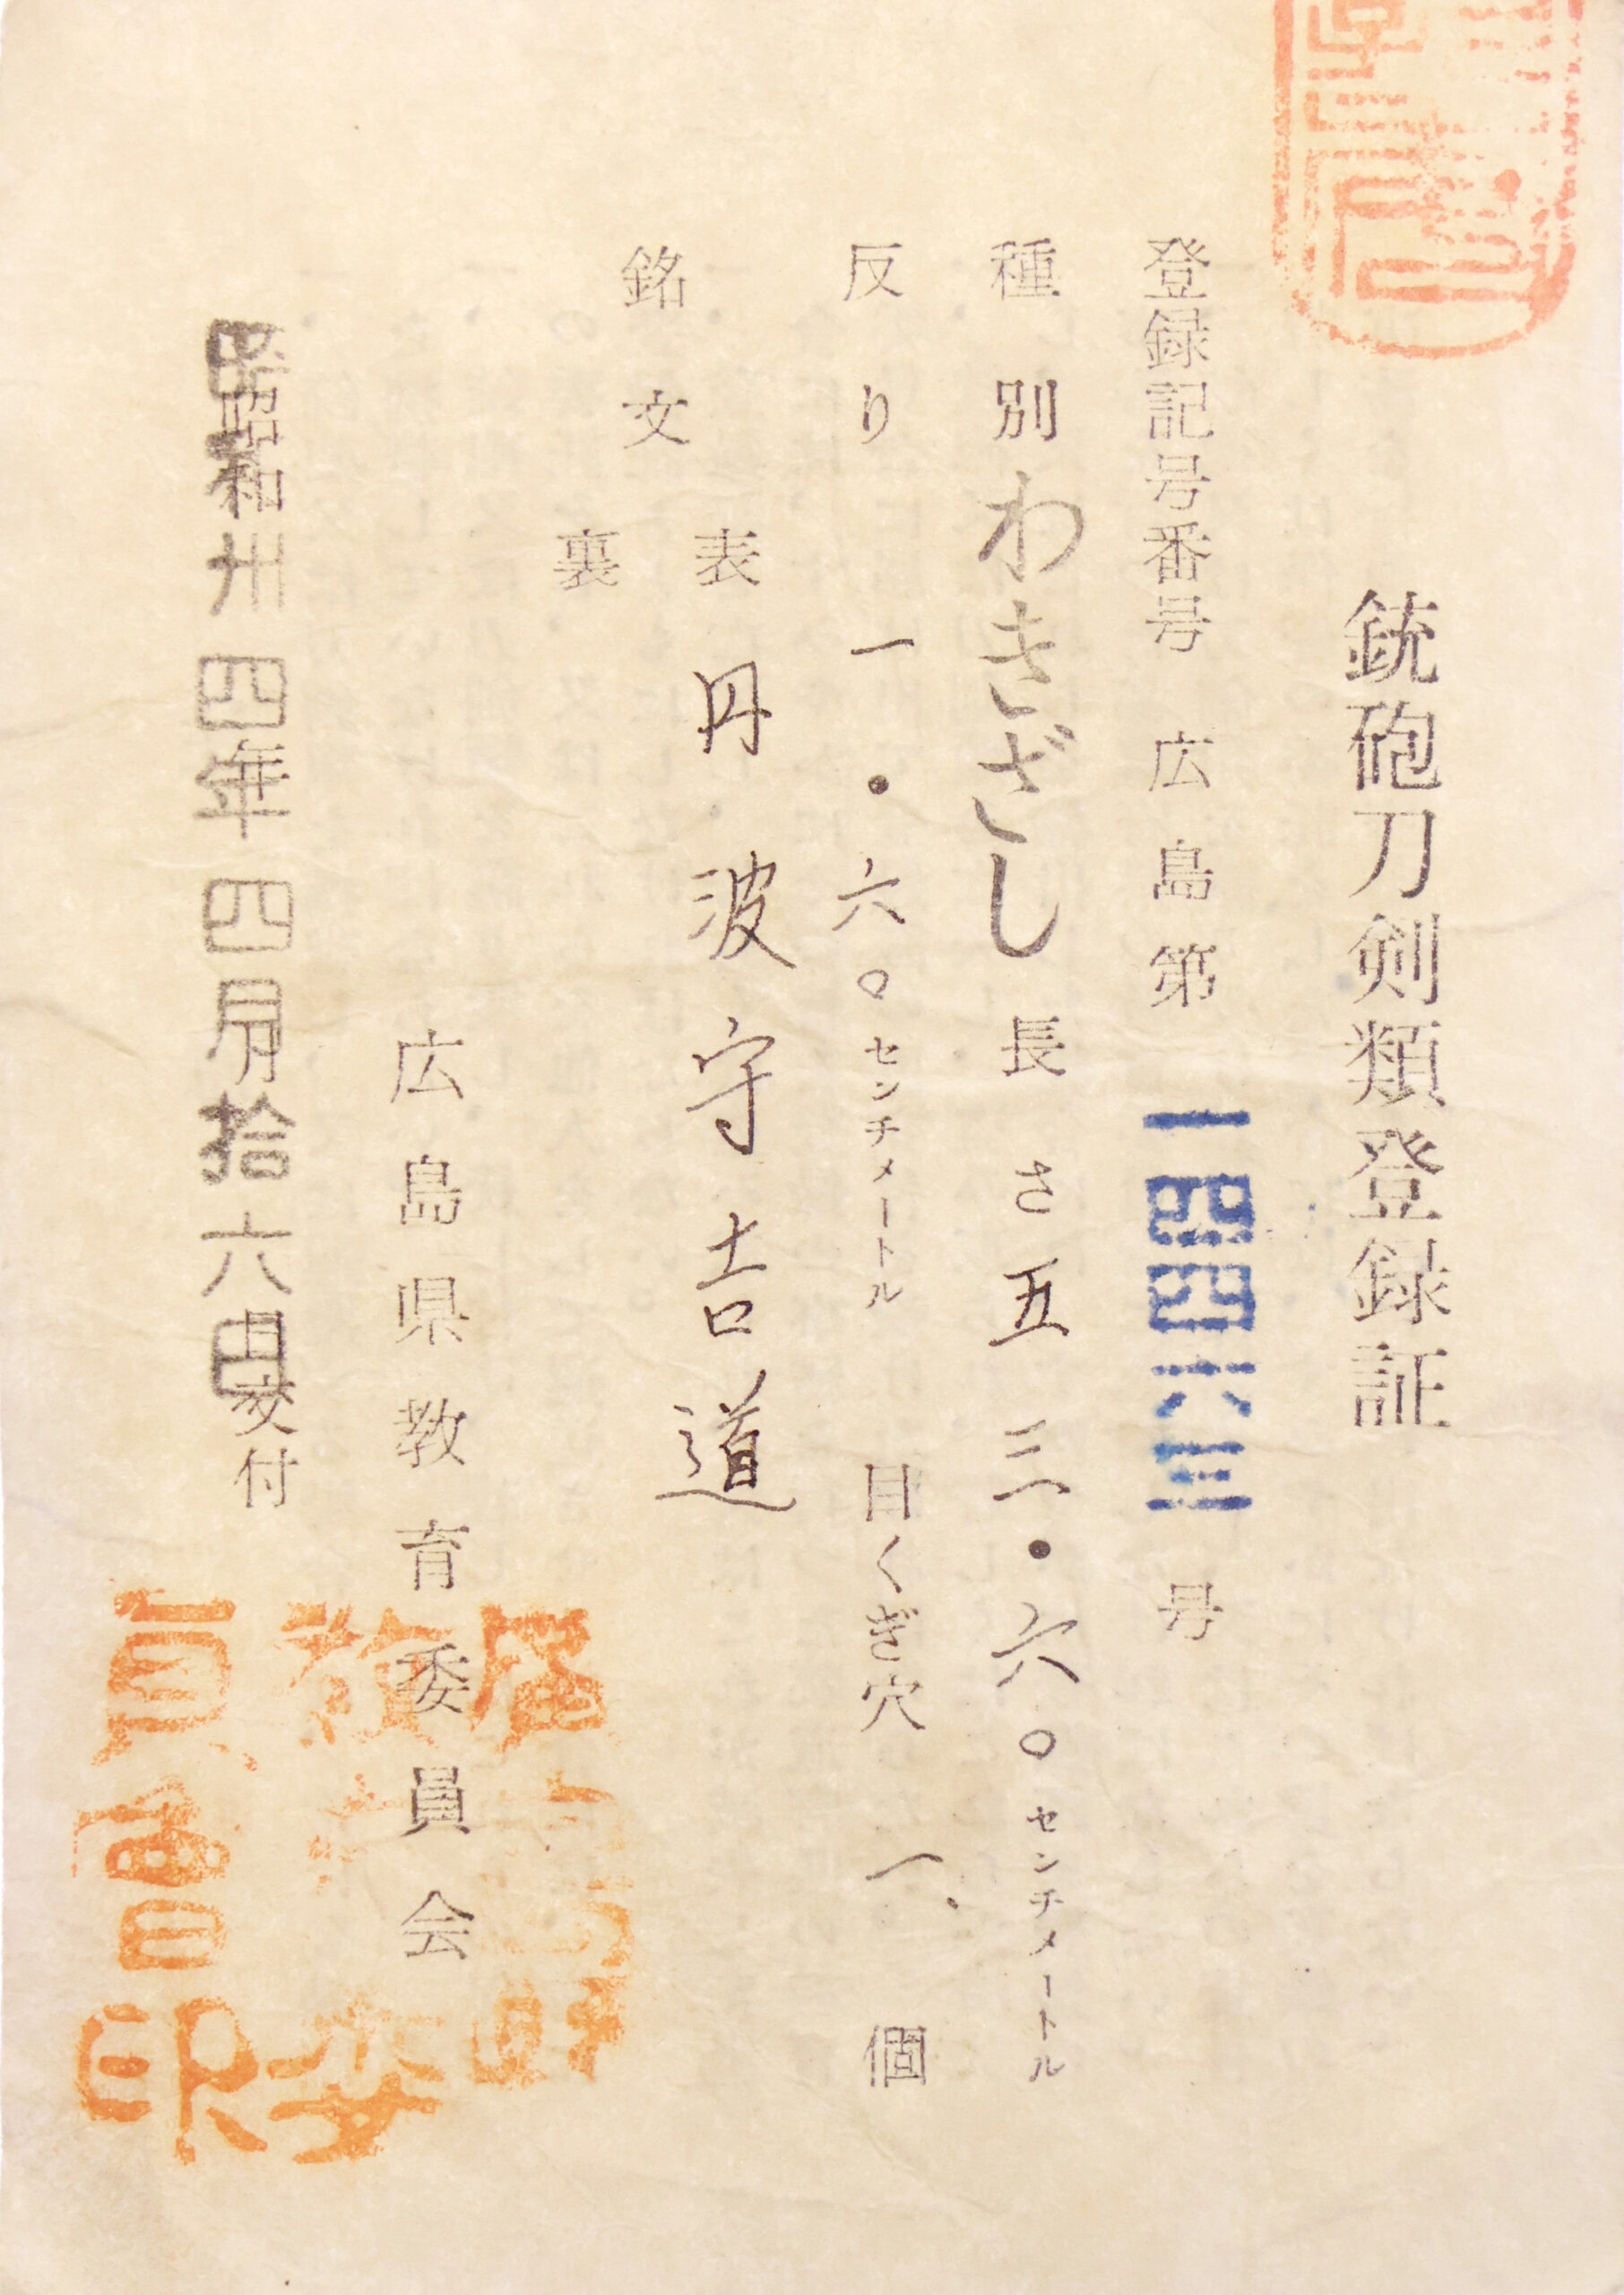 銃砲刀剣類登録証
登録記号番号 広島第 一四四六三 号
種別 わきざし 長さ 五三・六〇 センチメートル
反り 一・六〇 センチメートル 目くぎ穴 一、個
銘文
表 丹波守吉道
裏
広島県教育委員会
昭和卅四年四月拾六日交付
廣島縣
教育委
員會印